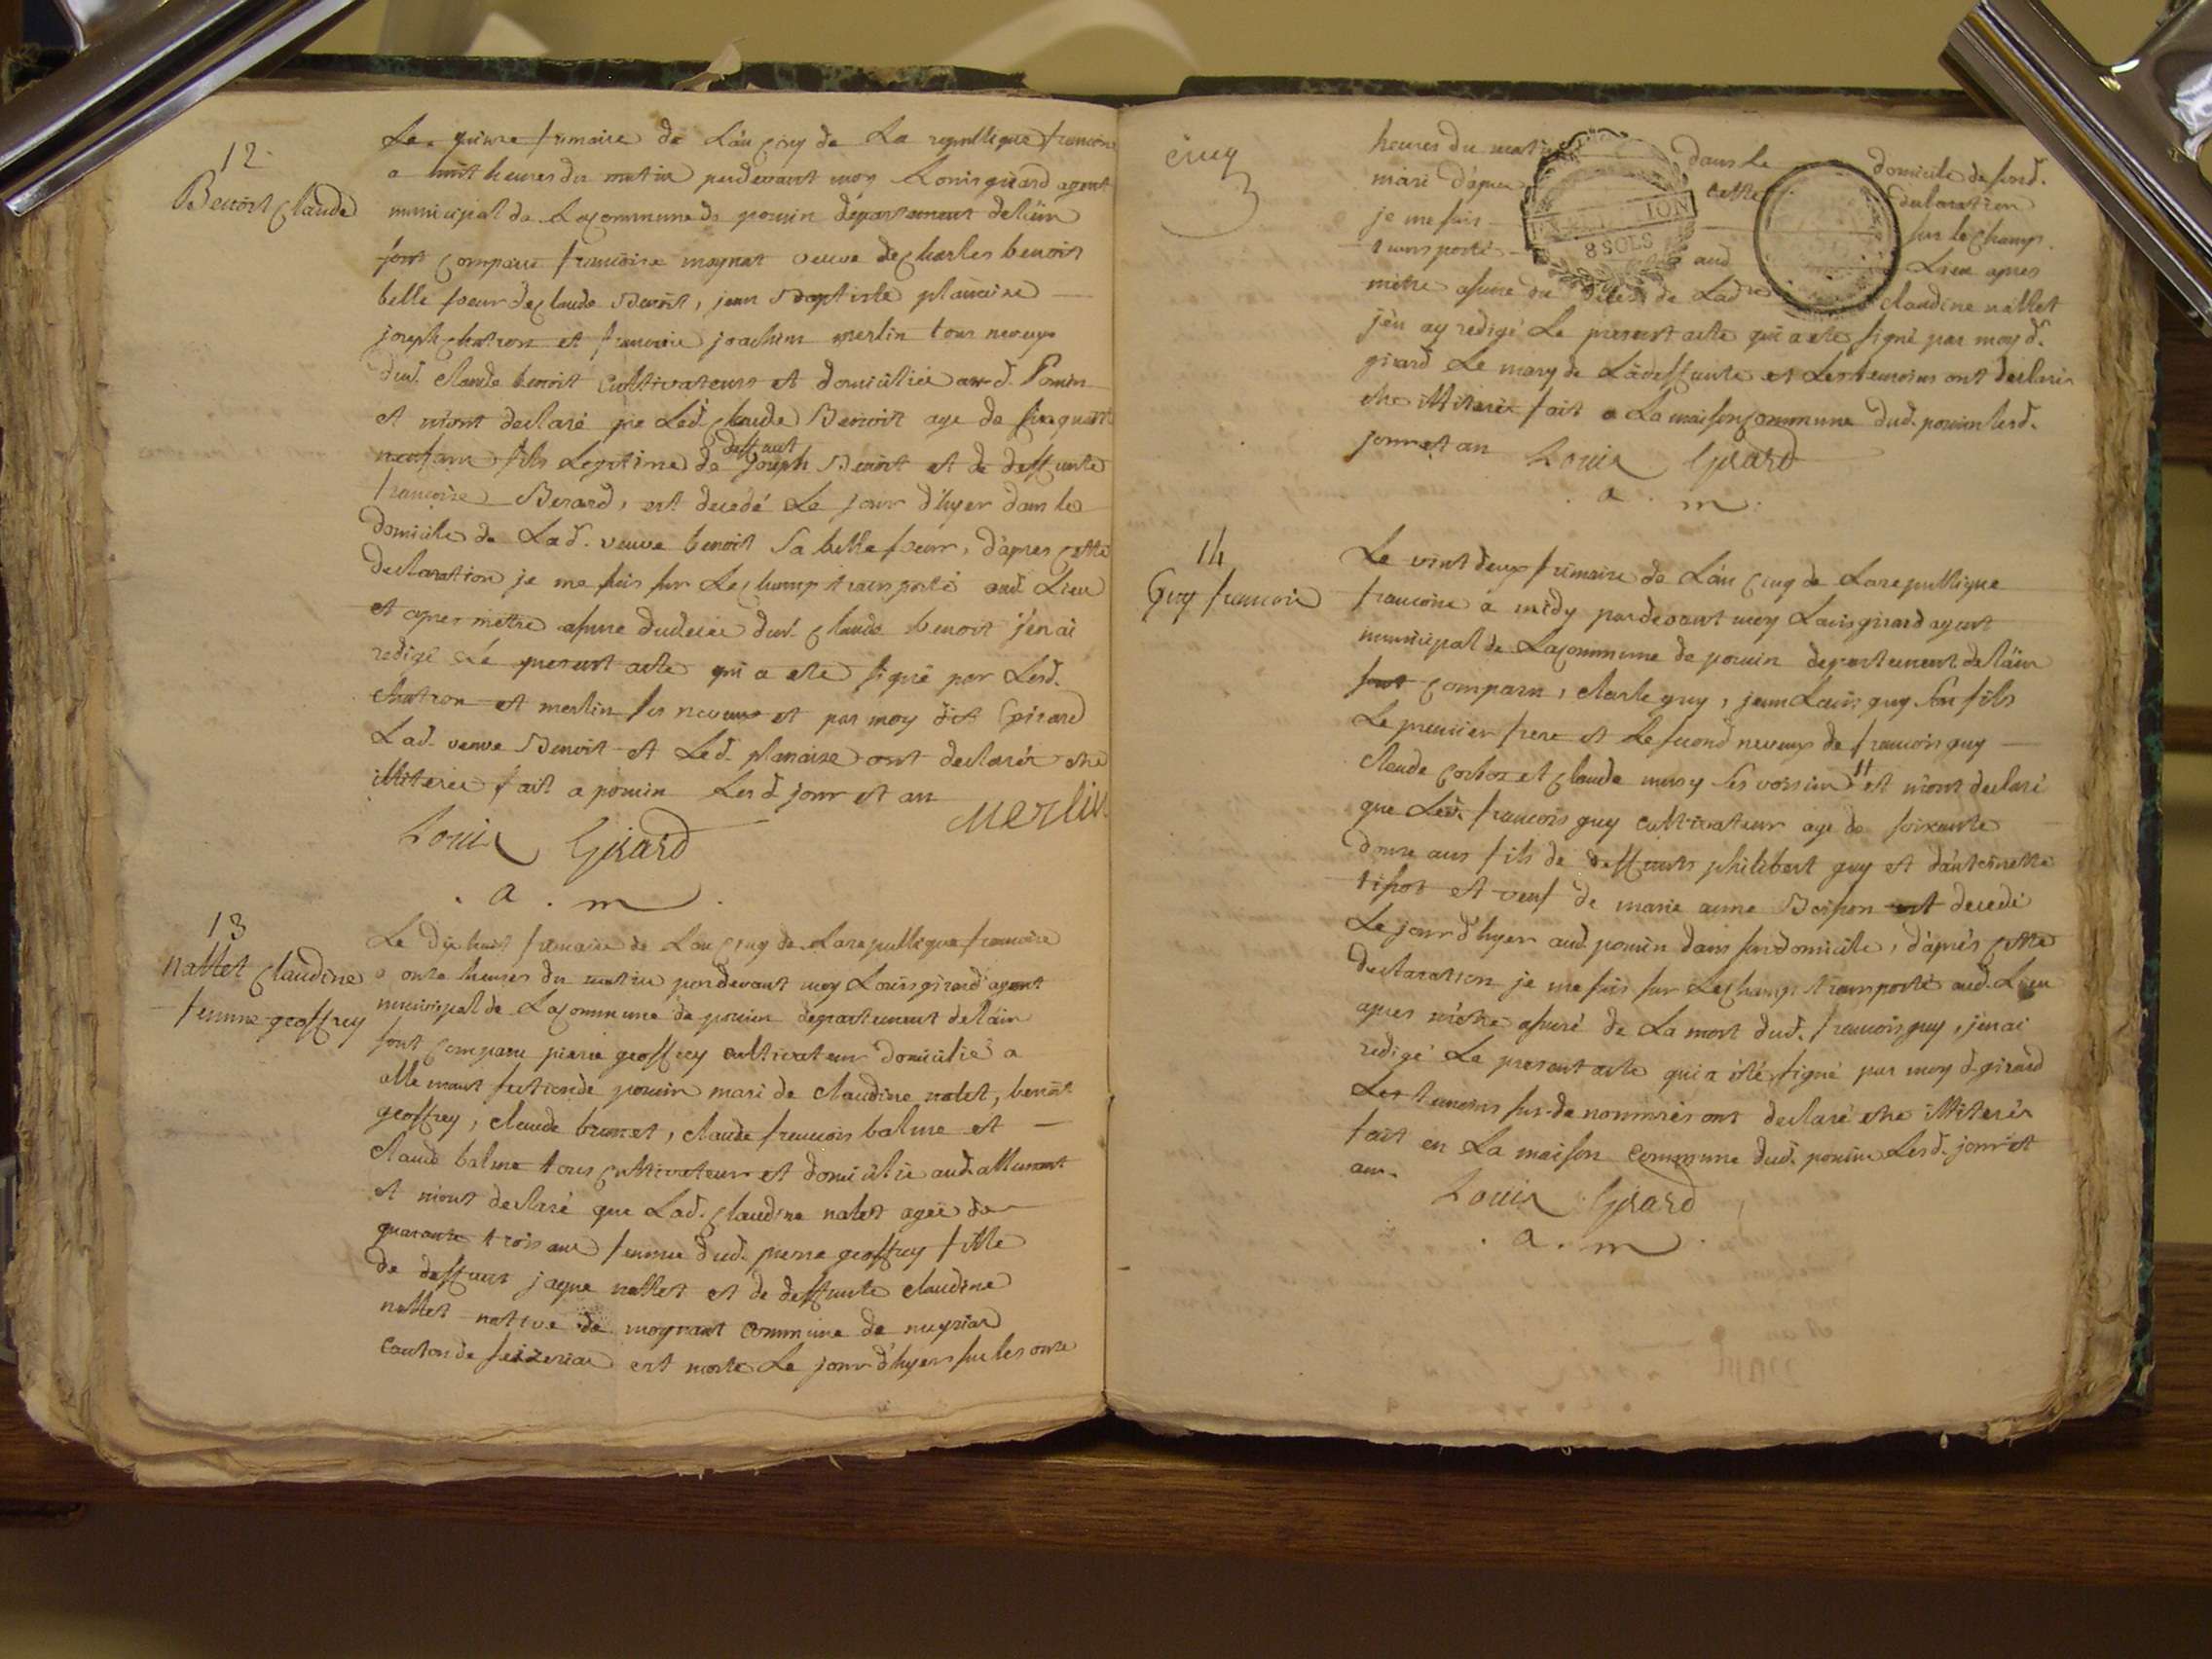 12
Benoit Claude
Le quinze frimaire de L'an cinq de La republlique francoise
a huit heures du matin pardevant moy Louis girard agent
municipal de La commune de poncin departement de L'ain
sont comparu francoise moynat veuve de charles benoit
belle soeur de claude Benoit, jean Baptiste planaise
joseph chatron et francois joachim merlin tous neveux
dud. claude benoit cultivateurs et domiciliée aud. Poncin
et m'ont declaré que Led. claude Benoit age de
neuf ans fils Legitime de deffunt joseph Benoit et de deffunte
francoise Berard, est decedé Le jour d'hyer dans le
domicile de Lad. veuve benoit sa belle soeur, d'apres cette
declaration je me suis sur Lechamp transporté aud. Lieu
et apres m'etre asuré du deces dud. claude benoit j'en ai
redigé Le present acte qui a ete signé par Lesd.
chatron et merlin ses neveux et par moy dit Girard
Lad. veuve Benoit et Led. planaise ont declarés etre
illiterée fait a poncin Lesd jour et an
Merlin
Louis Girard
. a . m .
13
nallet claudine
femme geoffrey
Le dix huit frimaire de Lan cinq de La republlique francoise
a onze heures du matin pardevant moy Louis girard agent
municipal de La commune de poncin departement de L'ain
sont comparu pierre geoffrey cultivateur domicilié a
allemant section de poncin mari de claudine nalet, benoit
geoffrey, claude brunet, claude francois balme et
claude balme tous cultivateurs et domicilié aud. allemant
et m'ont declaré que Lad. claudine nalet ageé de
quarante trois ans femme dud. pierre geoffrey fille
de deffunt jaque nallet et de deffunte claudine
nallet native de moyrant commune de neyriar
canton de seizeriar est morte Le jour d'hyer sur les onze
cinq
heures du matin dans le domicile de sond.
mari d'apres cette declaration
je me suis sur le champ
transporté aud Lieu apres
m'etre asuré du deces de Lad. claudine nallet
j'en ay redigé Le present acte qui a ete signé par moy d.
girard Le mary de La deffunte et Les temoins ont declarés
etre illiterés fait a La maison commune dud. poncin lesd.
jour et an
Louis Girard
. a . m .
EXPEDITION
8 SOLS
14
Guy francois
Le vint deux frimaire de L'an cinq de La republlique
francoise a midy pardevant moy Louis girard agent
municipal de La commune de poncin departement de L'ain
sont comparu, charle guy, jean Louis guy son fils
Le premier frere et Le second neveux de francois guy
claude cochoz et claude musy ses voisins et m'ont declaré
que Led. francois guy cultivateur age de soixante
douze ans fils de deffunts philibert guy et d'antoinette
tissot et veuf de marie anne Boisson est decedé
Le jour d'hyer aud. poncin dans son domicile, d'aprés cette
declaration je me suis sur Lechamp transporté aud. Lieu
apres m'etre asuré de La mort dud. francois guy, j'en ai
redigé Le present acte qui a été signé par moy d. girard
Les temoins sus-denommés ont declaré etre illiterés
fait en La maison commune dud. poncin Lesd. jour et
an.
Louis Girard
. a . m .